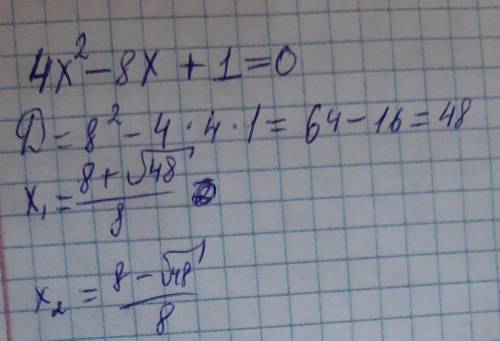 4x² - 8x + 1 = 0
D = 8² - 4 · 4 · 1 = 64 - 16 = 48
x₁ = (8 + √48) / 8
x₂ = (8 - √48) / 8